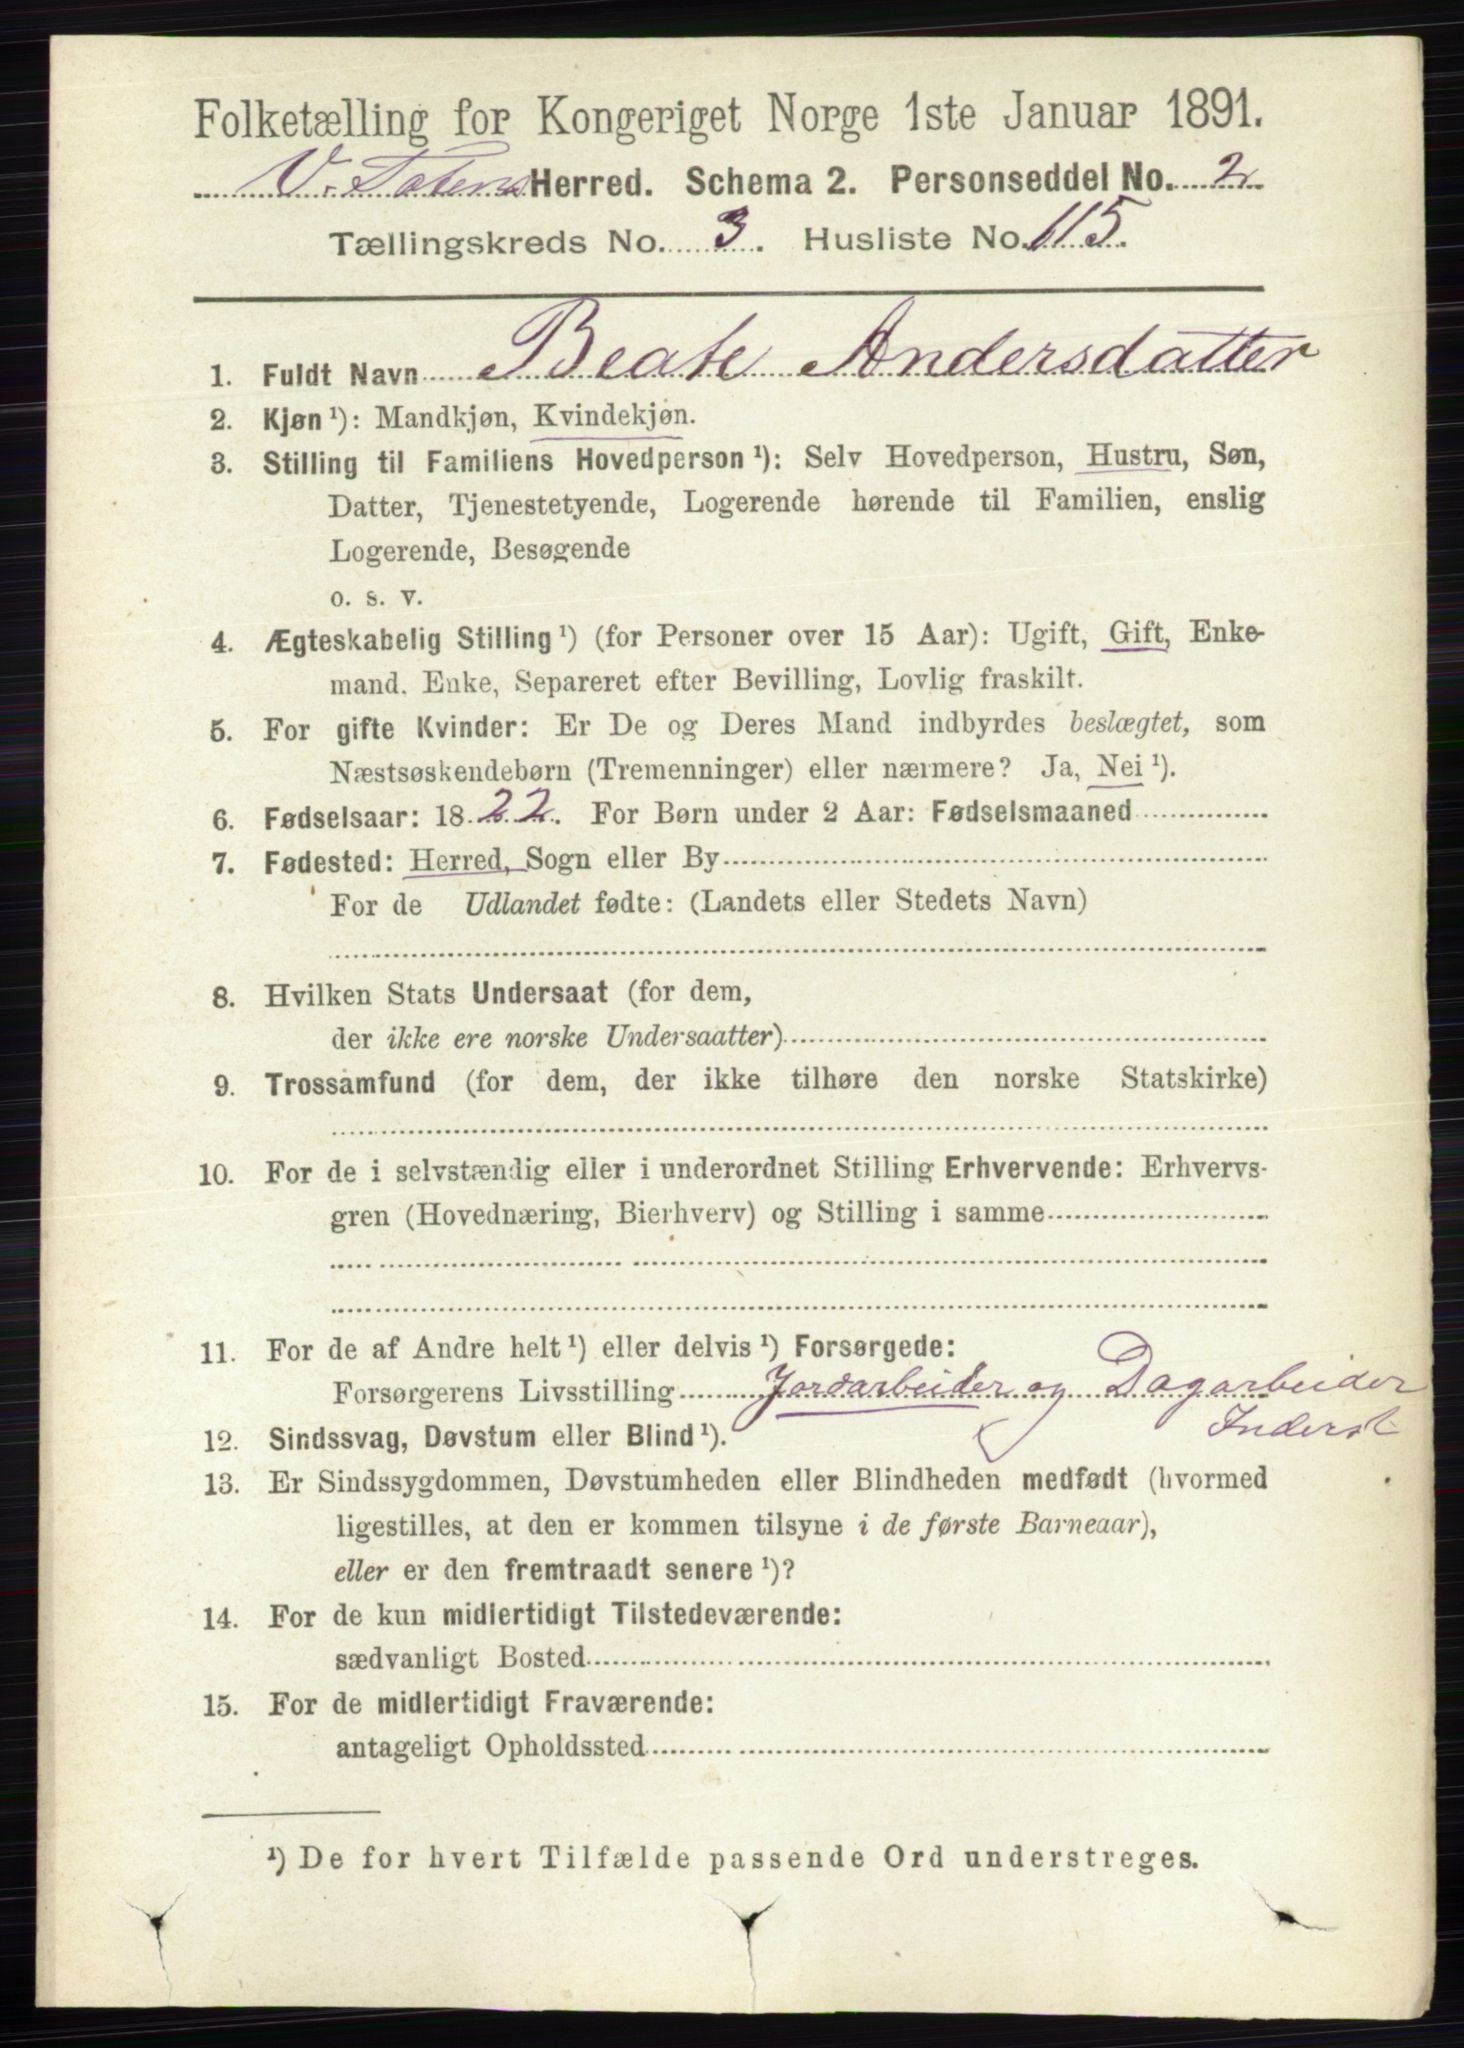 Folketælling for Kongeriget Norge 1ste Januar 1891.
V. Totens Herred. Schema 2. Personseddel No. 2
Tællingskreds No. 3. Husliste No. 115.
1. Fuldt Navn Beate Andersdatter
2. Kjøn ¹): Mandkjøn, Kvindekjøn.
3. Stilling til Familiens Hovedperson ¹): Selv Hovedperson, Hustru, Søn,
Datter, Tjenestetyende, Logerende hørende til Familien, enslig
Logerende, Besøgende
o. s. v.
4. Ægteskabelig Stilling ¹) (for Personer over 15 Aar): Ugift, Gift, Enke-
mand, Enke, Separeret efter Bevilling, Lovlig fraskilt.
5. For gifte Kvinder: Er De og Deres Mand indbyrdes beslægtet, som
Næstsøskendebørn (Tremenninger) eller nærmere? Ja, Nei ¹).
6. Fødselsaar: 1822. For Børn under 2 Aar: Fødselsmaaned
7. Fødested: Herred, Sogn eller By
For de Udlandet fødte: (Landets eller Stedets Navn)
8. Hvilken Stats Undersaat (for dem,
der ikke ere norske Undersaatter)
9. Trossamfund (for dem, der ikke tilhøre den norske Statskirke)
10. For de i selvstændig eller i underordnet Stilling Erhvervende: Erhvervs-
gren (Hovednæring, Bierhverv) og Stilling i samme
11. For de af Andre helt ¹) eller delvis ¹) Forsørgede:
Forsørgerens Livsstilling Jordarbeider og Dagarbeider
Inderst
12. Sindssvag, Døvstum eller Blind ¹).
13. Er Sindssygdommen, Døvstumheden eller Blindheden medfødt (hvormed
ligestilles, at den er kommen tilsyne i de første Barneaar),
eller er den fremtraadt senere ¹)?
14. For de kun midlertidigt Tilstedeværende:
sædvanligt Bosted
15. For de midlertidigt Fraværende:
antageligt Opholdssted
¹) De for hvert Tilfælde passende Ord understreges.